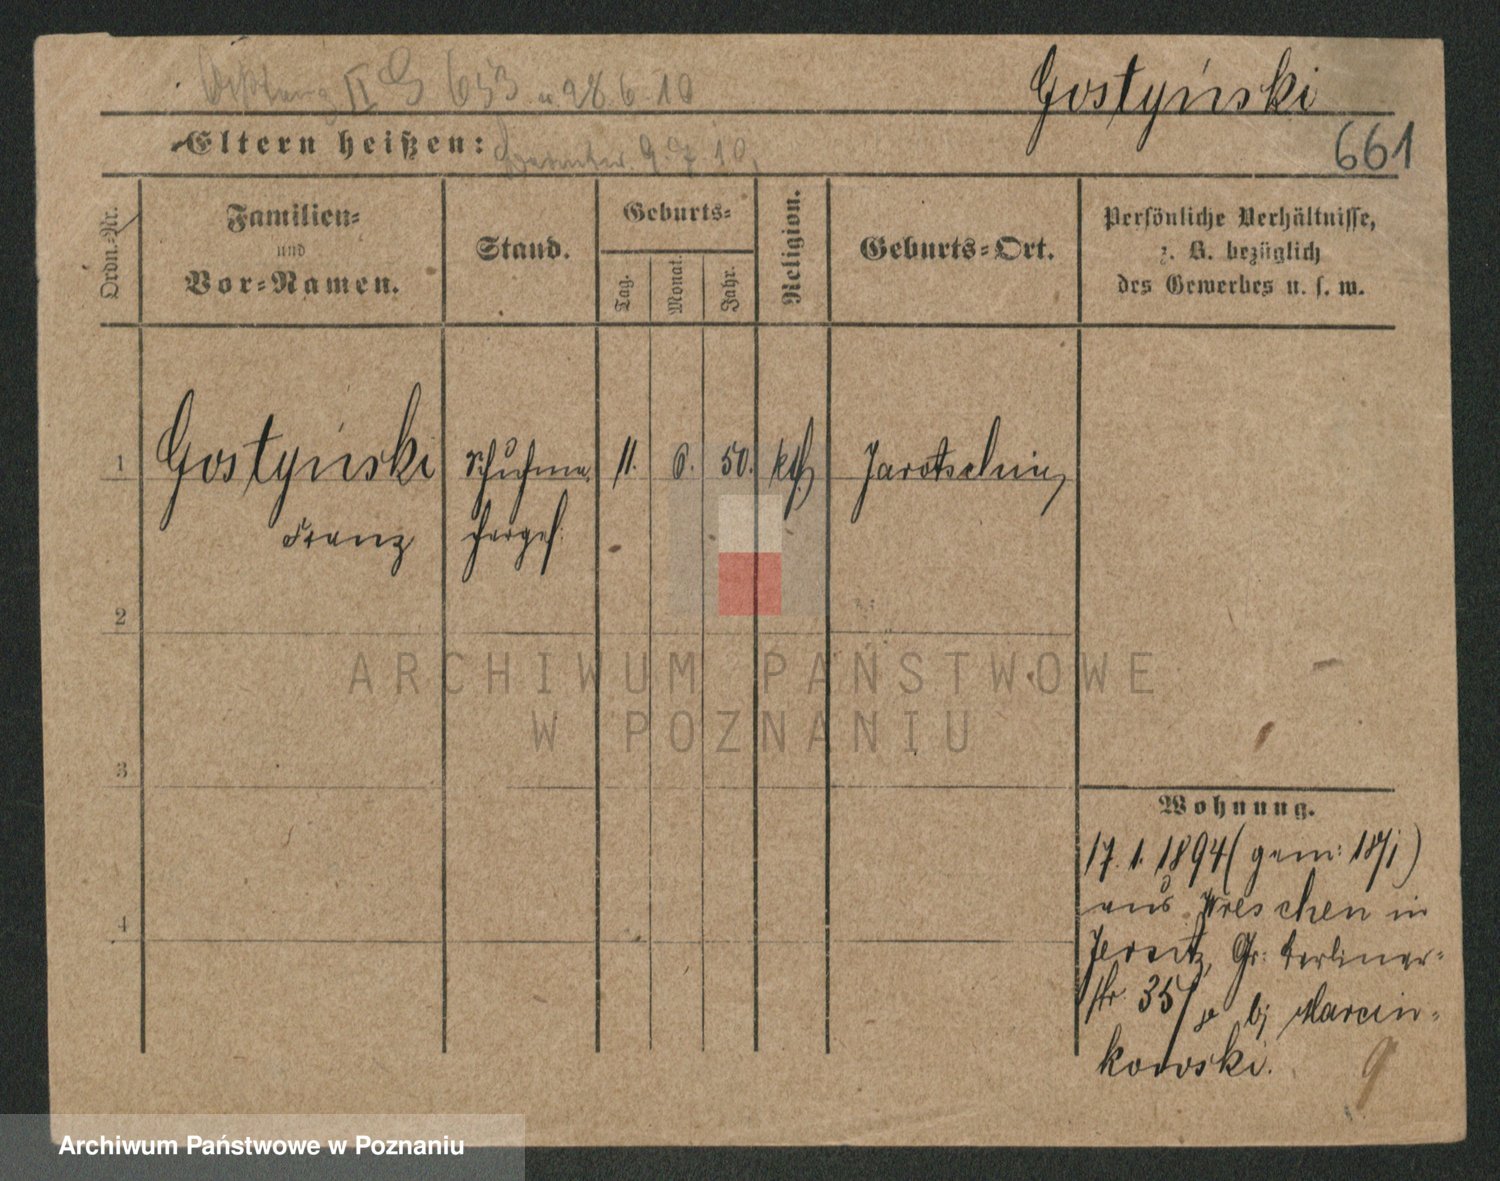 II G 653 u 28 6 10
Gostyński
661
Eltern heißen:
9. 7. 10.
Ordn.-Nr.
Familien-
und
Vor-Namen.
Stand.
Geburts-
Tag.
Monat.
Jahr.
Religion.
Geburts-Ort.
Persönliche Verhältnisse,
z. B. bezüglich
des Gewerbes u. s. w.
1
Gostyński
Franz
Schuhma
chergs.
11.
6.
50.
kth
Jarotschin
2
3
4
Wohnung.
17. 1. 1894 (gem: 18/1)
aus Wreschen in
Jersitz, Gr: Berliner-
str. 35/ bj Marcin-
kowski.
9
ARCHIWUM PAŃSTWOWE
W POZNANIU
Archiwum Państwowe w Poznaniu